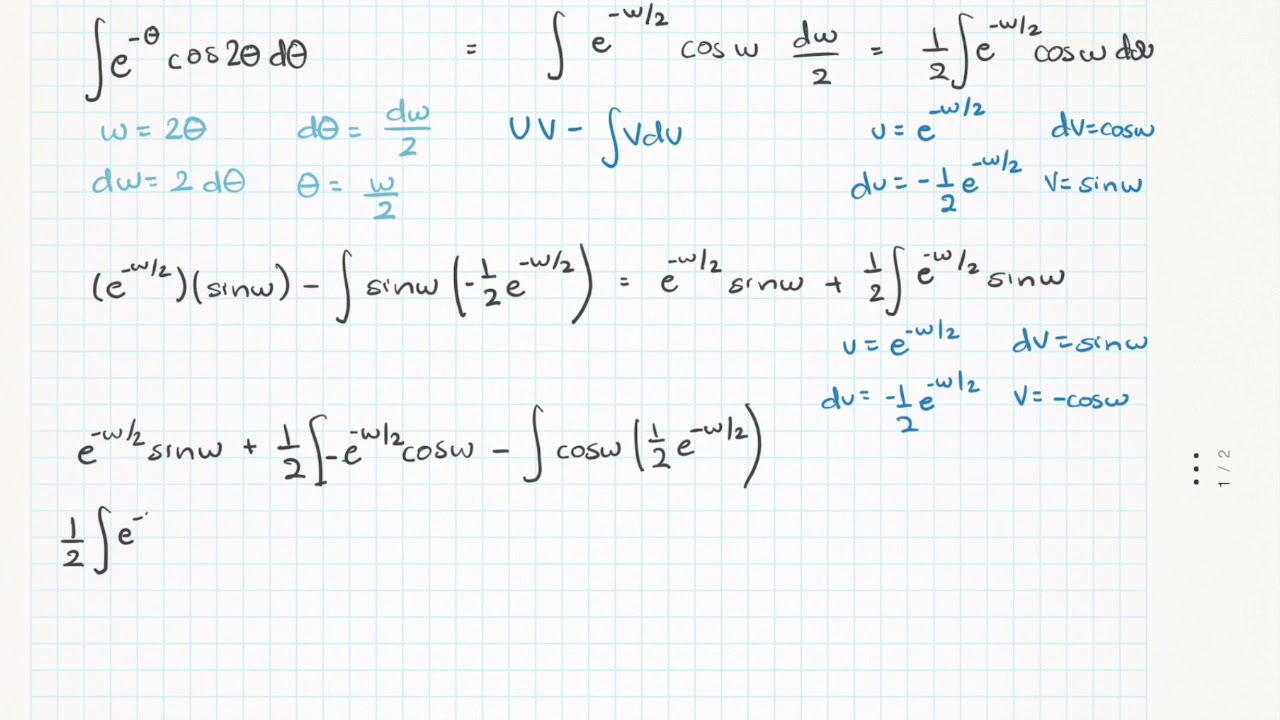 ∫ e^{-θ} cos 2θ dθ = ∫ e^{-w/2} cos w dw/2 = 1/2 ∫ e^{-w/2} cos w dw
w = 2θ dθ = dw/2 UV - ∫ V dU u = e^{-w/2} dv = cos w
dw = 2 dθ θ = w/2 du = -1/2 e^{-w/2} v = sin w
(e^{-w/2})(sin w) - ∫ sin w (-1/2 e^{-w/2}) = e^{-w/2} sin w + 1/2 ∫ e^{-w/2} sin w
u = e^{-w/2} dv = sin w
du = -1/2 e^{-w/2} v = -cos w
e^{-w/2} sin w + 1/2 [-e^{-w/2} cos w - ∫ cos w (1/2 e^{-w/2})
1/2 ∫ e^{-
1 / 2